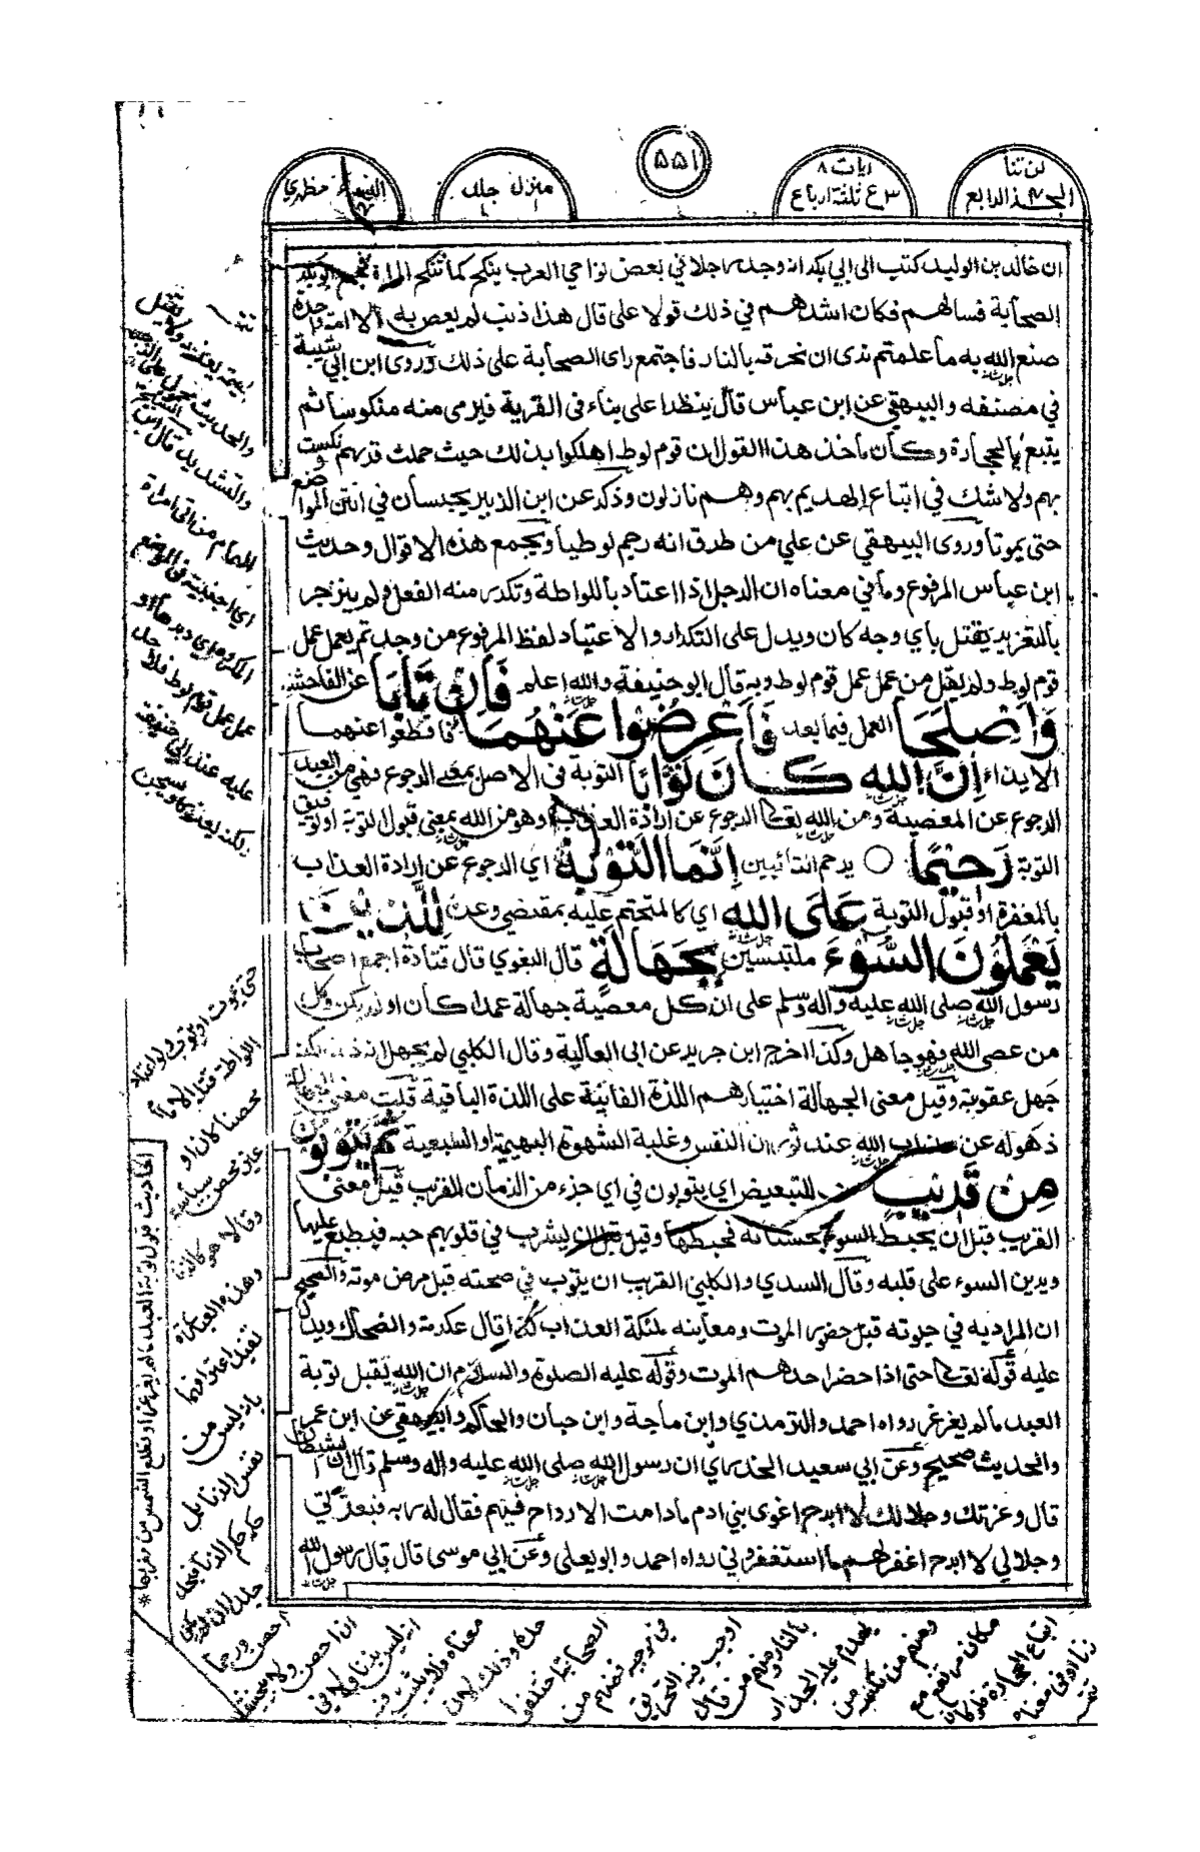 لن تنا
الجزء الرابع
ايات ٨
٣ع ثلثة ارباع
۵۵۱
منزل جلد
١ ١
النساء مظهري
ان خالد بن الوليد كتب الى ابي بكر انه وجد رجلا في بعض نواحي العرب ينكح كما تنكح المراة فجمع ابو بكر
الصحابة فسالهم فكان اشدهم في ذلك قولا على قال هذا ذنب لم يعص به الا امة واحدة
صنع الله به ما علمتم نرى ان نحرقه بالنار فاجتمع راى الصحابة على ذلك وروى ابن ابي شيبة
في مصنفه والبيهقي عن ابن عباس قال ينظر اعلى بناء فى القرية فيرمى منه منكوسا ثم
يتبع بالحجارة وكأن مأخذ هذا القول ان قوم لوط اهلكوا بذلك حيث حملت قريهم ونكست
بهم ولا شك في اتباع الهديم بهم وهم نازلون وذكر عن ابن الزبير يحبسان في انتن المواضع
حتى يموتا وروى البيهقي عن علي من طرق انه رجم لوطيا ويجمع هذه الاقوال وحديث
ابن عباس المرفوع وما في معناه ان الرجل اذا اعتاد باللواطة وتكرر منه الفعل ولم ينزجر
بالتعزير يقتل باي وجه كان ويدل على التكرار والاعتياد لفظ المرفوع من وجدتم يعمل عمل
قوم لوط ولم يقل من عمل عمل قوم لوط وبه قال ابو حنيفة والله اعلم فَاِنْ تَابَا عن الفاحشة
وَاَصْلَحَا العمل فيما بعد فَاَعْرِضُوا عَنْهُمَا فاقطعوا عنهما
الايذاء اِنَّ اللهَ كَانَ تَوَّابًا التوبة فى الاصل بمعنى الرجوع فهي من العبد
الرجوع عن المعصية ومن الله تعالى الرجوع عن ارادة العذاب وهو من الله بمعنى قبول التوبة او توفيق
التوبة رَحِيْمًا ○ يرحم التائبين اِنَّمَا التَّوْبَةُ اي الرجوع عن ارادة العذاب
بالمغفرة او قبول التوبة عَلَى اللهِ اي كالمتحتم عليه بمقتضي وعده لِلَّذِيْنَ
يَعْمَلُوْنَ السُّوْءَ ملتبسين بِجَهَالَةٍ قال البغوي قال قتادة اجمع اصحاب
رسول الله صلى الله عليه واله وسلم على ان كل معصية جهالة عمدا كان او لم يكن وكل
من عصى الله فهو جاهل وكذا اخرج ابن جرير عن ابى العالية وقال الكلبي لم يجهل انه ذنب لكنه
جهل عقوبته وقيل معنى الجهالة اختيارهم اللذة الفانية على اللذة الباقية قلت
ذهوله عن عذاب الله عند ثوران النفس وغلبة الشهوة البهيمية او السبعية ثُمَّ يَتُوْبُوْنَ
مِنْ قَرِيْبٍ من للتبعيض اي يتوبون في اي جزء من الزمان القريب قيل معنى
القريب قبل ان يحبط السوء بحسناته فيحبطها وقيل قبل ان يشرب في قلوبهم حبه فيطبع عليها
ويرين السوء على قلبه وقال السدي والكلبي القريب ان يتوب في صحته قبل مرض موته والصحيح
ان المراد به في حيوته قبل حضور الموت ومعاينة ملئكة العذاب كذا قال عكرمة والضحاك ويدل
عليه قوله تعالى حتى اذا حضر احدهم الموت وقوله عليه الصلوة والسلام ان الله يقبل توبة
العبد ما لم يغرغر رواه احمد والترمذي وابن ماجة وابن حبان والحاكم والبيهقي عن ابن عمر
والحديث صحيح وعن ابي سعيد الخدري ان رسول الله صلى الله عليه واله وسلم قال ان الشيطان
قال وعزتك وجلالك لا ابرح اغوى بني ادم ما دامت الارواح فيهم فقال له ربه فبعزتي
وجلالي لا ابرح اغفر لهم ما استغفروني رواه احمد وابو يعلى وعن ابي موسى قال قال رسول الله
والحديث
والتشديد قال ابن
الهمام من اتى امراة
اي اجنبية فى الموضع
المكروه اي دبرها او
عمل عمل قوم لوط فلا حد
عليه عند ابي حنيفة
لكنه يعزر ويسجن
حتى يموت او يتوب ولو اعتاد
اللواطة قتله الامام
محصنا كان او
غير محصن سياسة
وقالا هو كالزنا
وهذه العبارة
تفيد اعترافهما
بانه ليس من
نفس الزنا بل
حكمه حكم الزنا فيحد
احاديث قبول توبة العبد ما لم يغرغر او تطلع الشمس من مغربها *